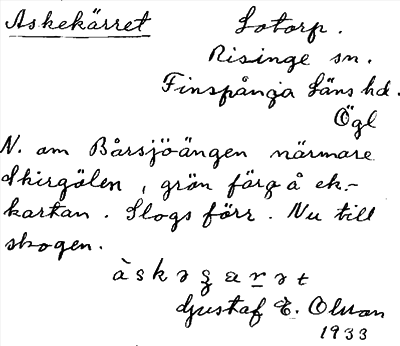 Askekärret
Lotorp.
Risinge sn.
Finspånga Läns hd.
Ögl
N. om Bårsjöängen närmare
Skirgölen, grön färg å ek.-
kartan. Slogs förr. Nu till
skogen.
àskəʒarət
Gustaf E. Olsson
1933